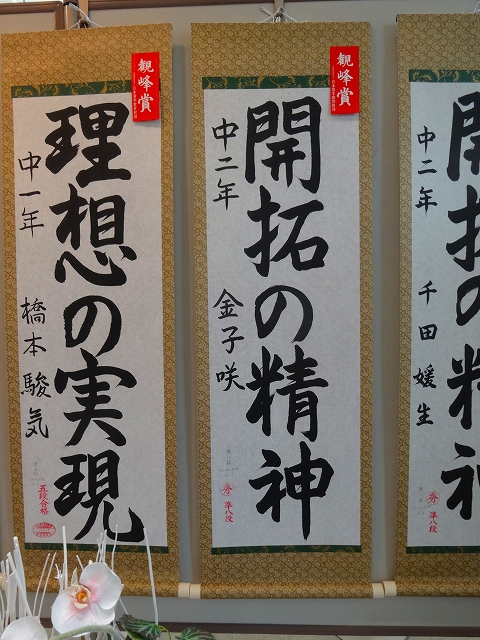 観峰賞
理想の実現
中一年 橋本駿気
五段合格
観峰賞
開拓の精神
中二年 金子咲
秀 準八段
開拓の精神
中二年 千田媛生
秀 準八段